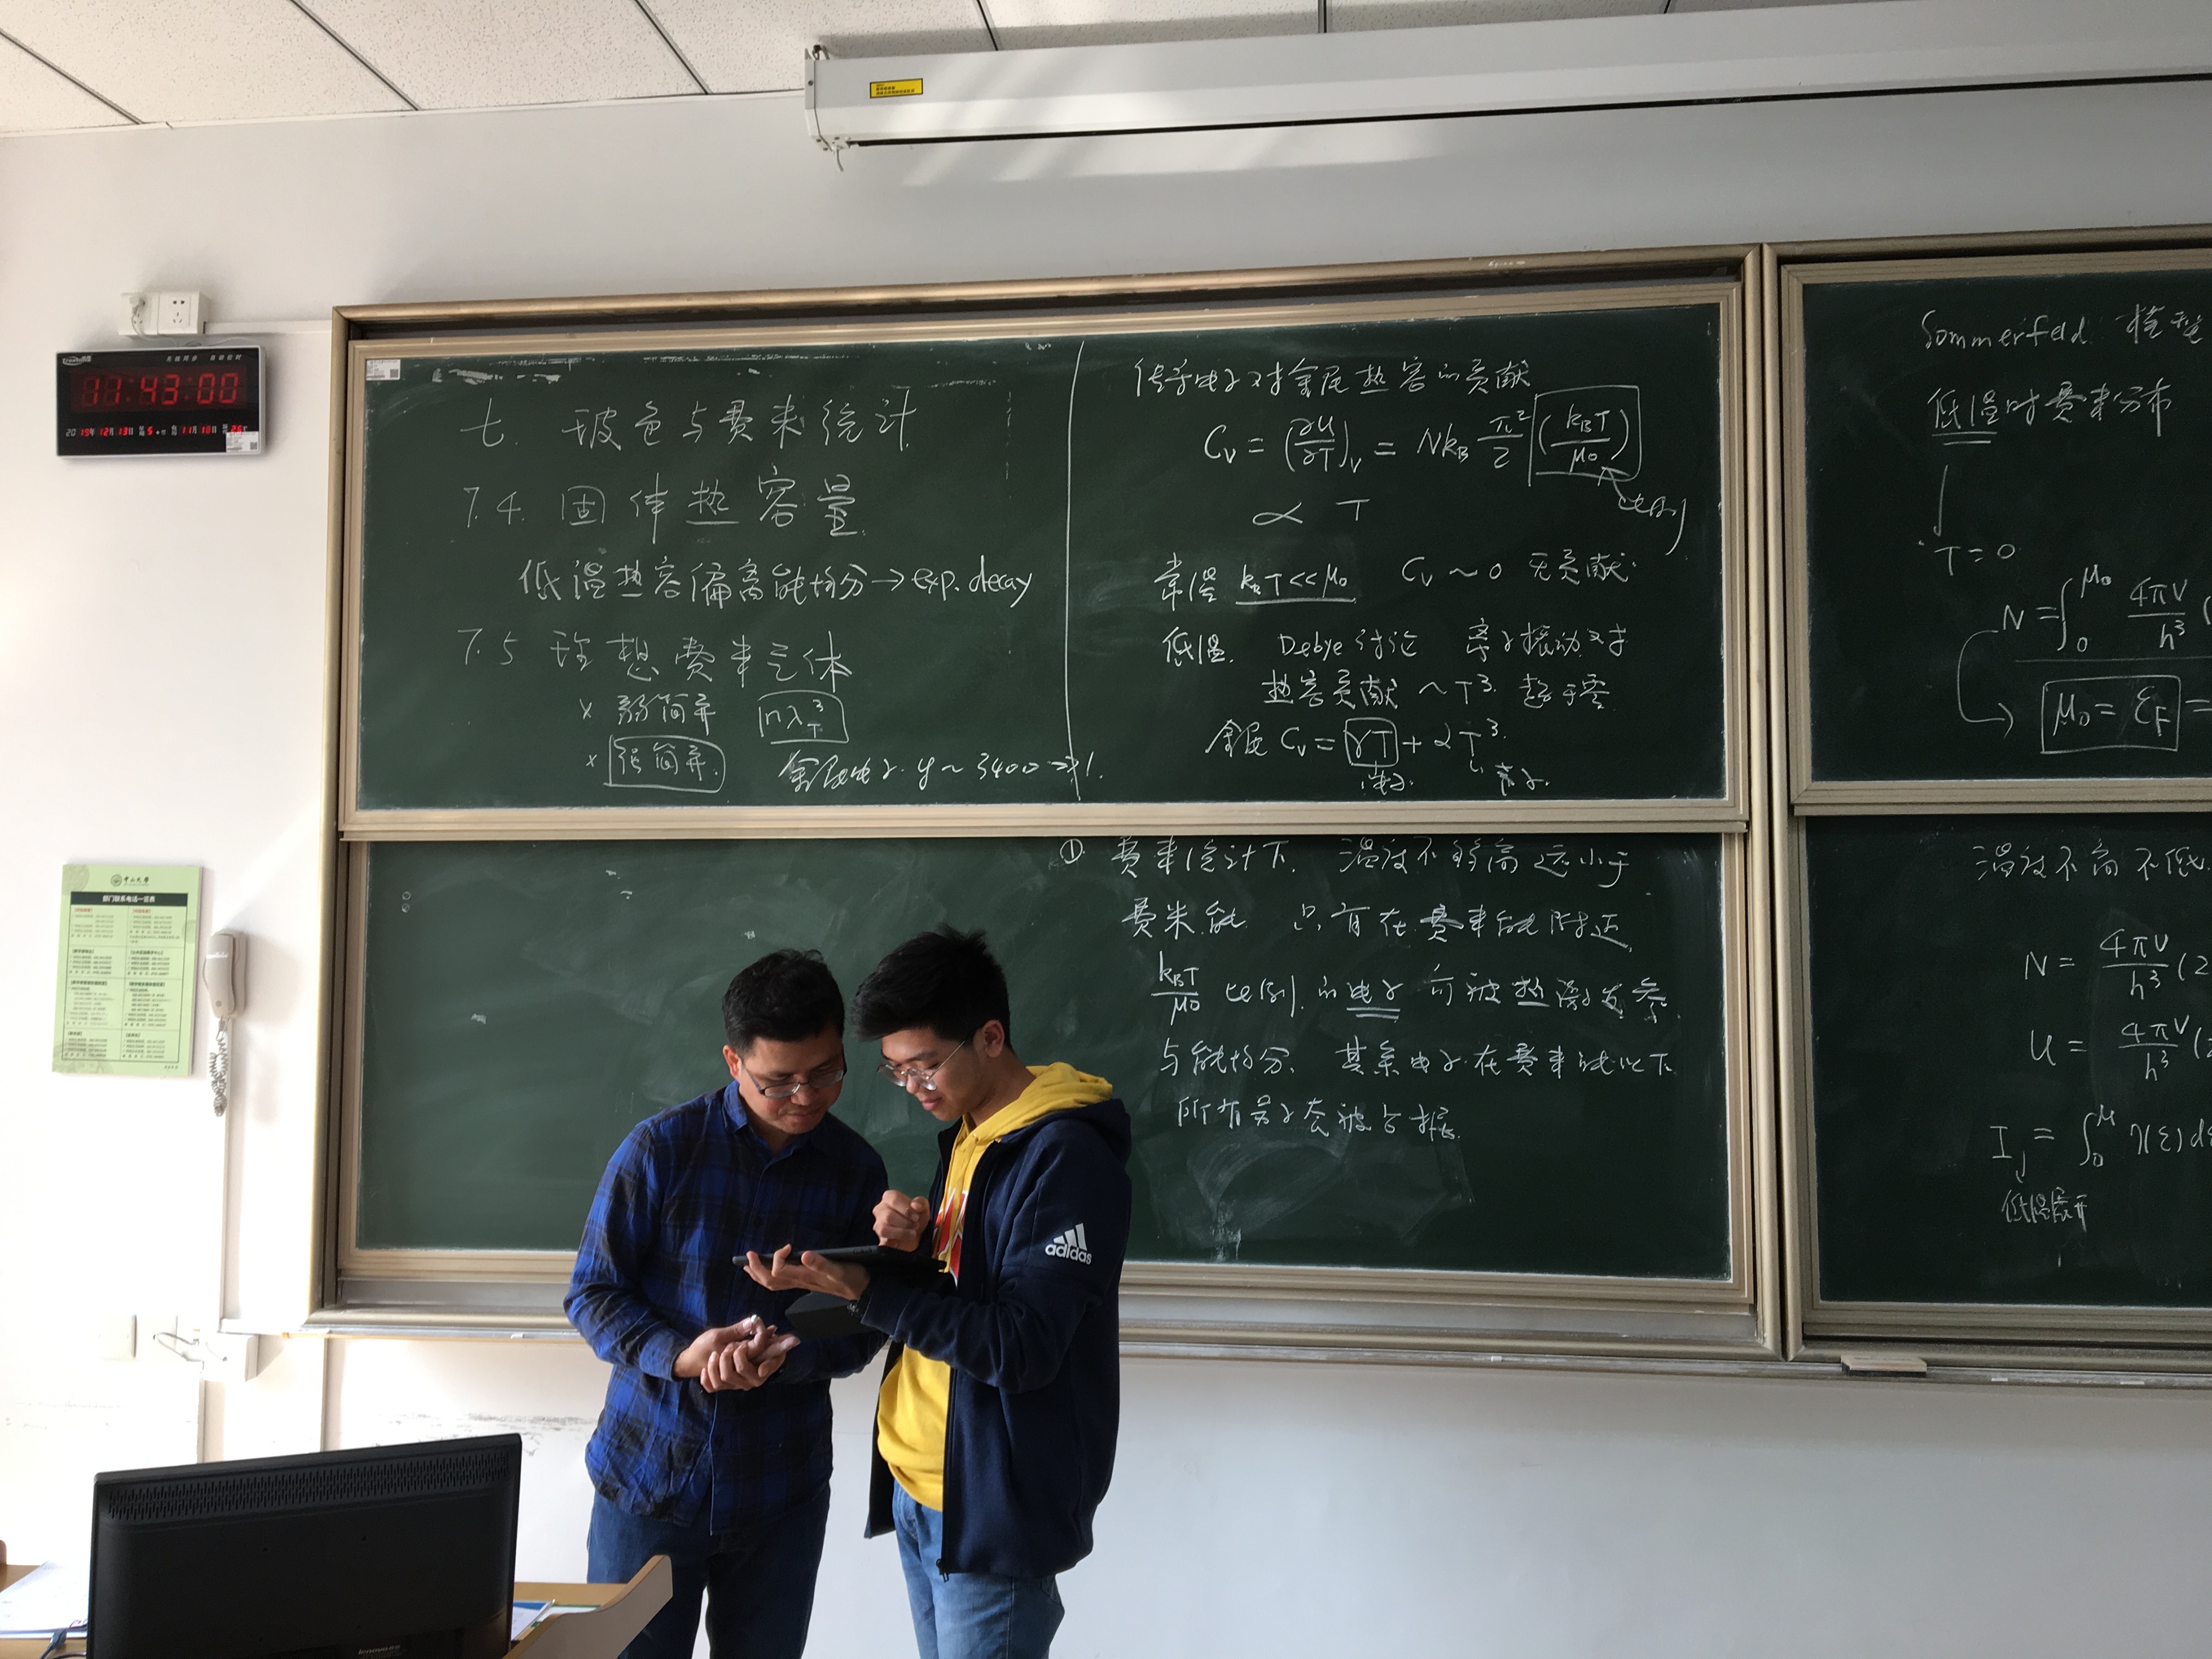 11:43:00
2019年 12月 13日 星期5 农历 11月 18日
中山大学
部门联系电话一览表
七. 玻色与费米统计
7.4. 固体热容量
低温热容偏离能均分→exp. decay
7.5 理想费米气体
× 弱简并 nλ_T^3
× 强简并.
金属电子. y ~ 3400 >> 1.
传导电子对金属热容的贡献
C_V = (∂U/∂T)_V = Nk_B π²/2 (k_BT/μ_0)
比例
∝ T
常温 k_BT << μ_0 C_V ~ 0 无贡献.
低温. Debye讨论 离子振动对
热容贡献 ~T^3. 趋于零
金属 C_V = γT + αT^3.
电子. 离子.
① 费米统计下. 温度不够高 远小于
费米能 只有在费米能附近,
k_BT/μ_0 比例. 的电子 可被热激发参
与能均分. 其余电子在费米能以下
所有量子态被占据.
Sommerfeld 模型
低温时费米分布
T = 0
N = ∫_0^μ_0 4πV/h^3 (
μ_0 = ε_F =
温度不高不低.
N = 4πV/h^3 (2
U = 4πV/h^3 (2
I_j = ∫_0^μ η(ε) dε
低温展开
adidas
lenovo